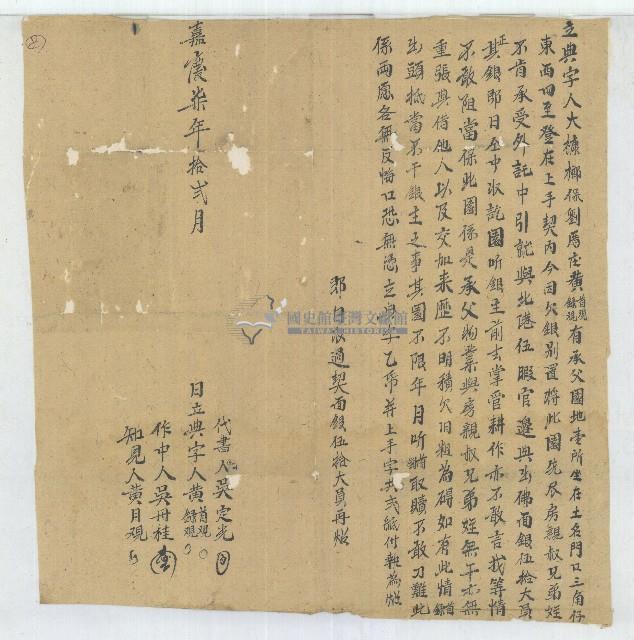 立典字人大槺榔保劉厝庄黃首觀錦觀有承父園地壹所坐在土名門口三角仔
東西四至登在上手契內今因欠銀別置將此園先尽房親叔兄弟姪
不肯承受外託中引就與北港伍暇官邊典出佛面銀伍拾大員
其銀即日仝中收訖園听銀主前去掌管耕作亦不敢言找等情
不敢阻當保此園係是承父物業與房親叔兄弟姪無干亦無
重張典借他人以及交加來歷不明積欠旧粗為碍如有此情首錦
出頭抵當不干銀主之事其園不限年月听首錦取贖不敢刁難此
係兩愿各無反悔口恐無憑立典字乙帋并上手字共弍紙付執為炤
即日收過契面銀伍拾大員再炤
嘉慶柒年拾弍月
代書人吳定光
日立典字人黃首觀錦觀
作中人吳丹桂
知見人黃月觀
國史館臺灣文獻館
TAIWAN HISTORICA